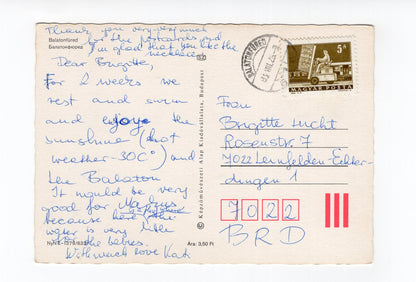 Thank you very very much
for the postcards and
I'm glad that you like the
necklace.
Balatonfüred
Балатонфюред
Dear Brigitte,
For 2 weeks we
rest and swim
and enjoye the
sunshine (hot
weather -30C°) and
the Balaton.
It would be very
good for
because here the
water is very little
for the babies.
With much love Kati
Képzőművészeti Alap Kiadóvállalata, Budapest
Ára: 3,50 Ft
BALATONFÜRED
5 Ft
MAGYAR POSTA
Frau
Brigitte Lucht
Rosenstr 7
7022 Leinfelden-Echter-
dingen 1
7022
BRD